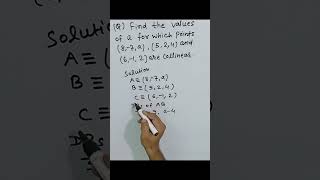 (Q) Find the values
of a for which points
(8,-7,a), (5,2,4) and
(6,-1,2) are collinear
Solution
A ≡ (8,-7,a)
B ≡ (5, 2, 4)
C ≡ (6,-1, 2)
of AB